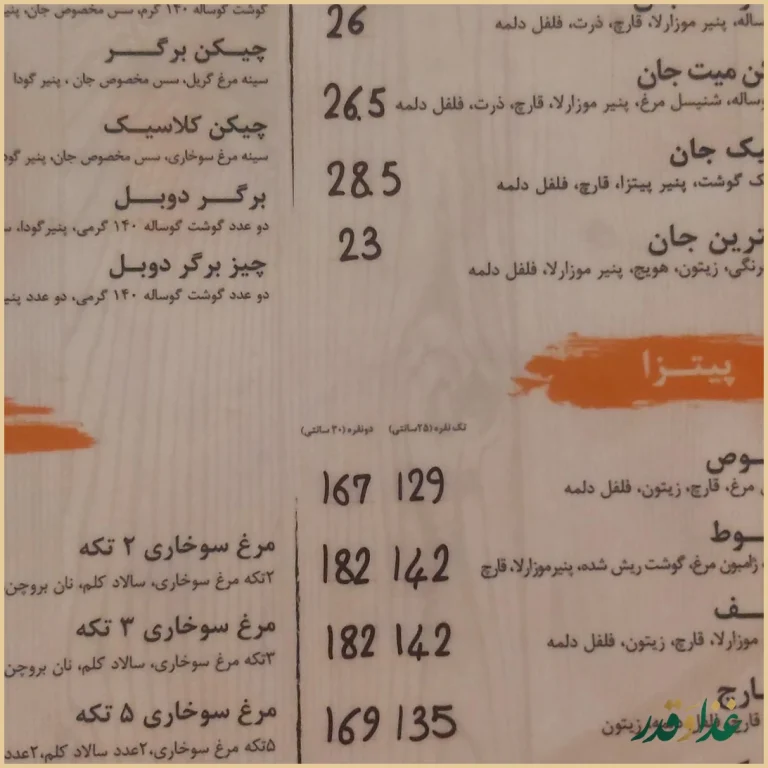 26
ساله، پنیر موزارلا، قارچ، ذرت، فلفل دلمه
میت جان
26.5
وساله، شنیسل مرغ، پنیر موزارلا، قارچ، ذرت، فلفل دلمه
یک جان
28.5
ک گوشت، پنیر پیتزا، قارچ، فلفل دلمه
ترین جان
23
رنگی، زیتون، هویج، پنیر موزارلا، فلفل دلمه
پیتزا
تک نفره (۲۵سانتی) دونفره (۳۰ سانتی)
وص
129 167
مرغ، قارچ، زیتون، فلفل دلمه
وط
142 182
ژامبون مرغ، گوشت ریش شده، پنیرموزارلا، قارچ
ف
142 182
موزارلا، قارچ، زیتون، فلفل دلمه
ارچ
135 169
زیتون
غذا و قدر
گوشت گوساله ۱۴۰ گرم، سس مخصوص جان، پنیر
چیکن برگر
سینه مرغ گریل، سس مخصوص جان ، پنیر گودا
چیکن کلاسیک
سینه مرغ سوخاری، سس مخصوص جان، پنیر گود
برگر دوبل
دو عدد گوشت گوساله ۱۴۰ گرمی، پنیرگودا، س
چیز برگر دوبل
دو عدد گوشت گوساله ۱۴۰ گرمی، دو عدد پنیر
مرغ سوخاری ۲ تکه
۲تکه مرغ سوخاری، سالاد کلم، نان بروچن
مرغ سوخاری ۳ تکه
۳تکه مرغ سوخاری، سالاد کلم، نان بروچن
مرغ سوخاری ۵ تکه
۵تکه مرغ سوخاری،۲عدد سالاد کلم،۲عدد